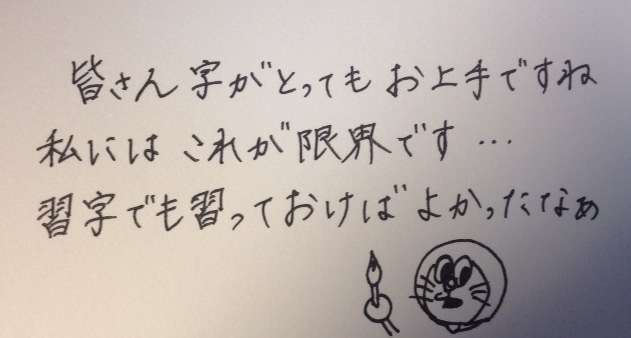 皆さん字がとってもお上手ですね
私にはこれが限界です…
習字でも習っておけばよかったなぁ